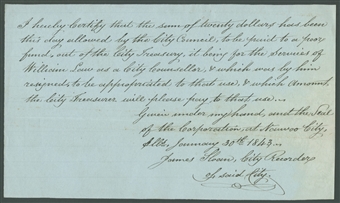 I hereby Certify that the sum of twenty dollars has been
this day allowed by the City Council, to be paid to a poor
fund, out of the City Treasury, it being for the services of
William Law as a City Counsellor, & which was by him
resigned to be appropriated to that use, & which amount,
the City Treasurer will please pay to that use.
Given under my hand, and the Seal
of the Corporation, at Nauvoo City,
Ills, January 30th 1843.
James Sloan, City Recorder
of said City.